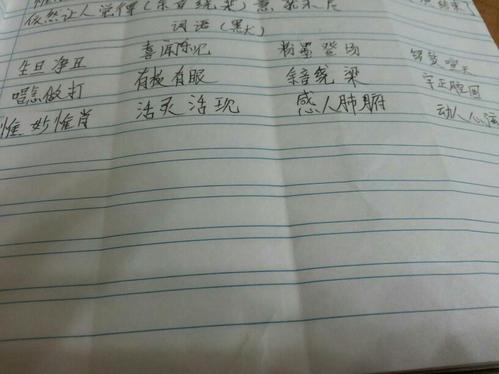 依然让人觉得(余音绕梁)意犹未尽
词语(黑大)
生旦净丑 喜闻乐见 粉墨登场
唱念做打 有板有眼 余音绕梁 字正腔圆
惟妙惟肖 活灵活现 感人肺腑 动人心